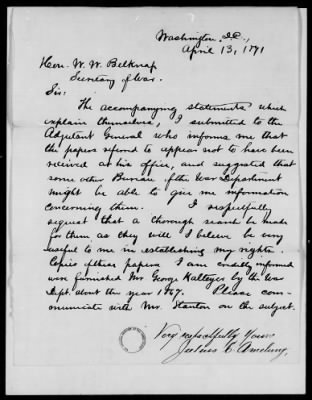 Washington, D.C.,
April 13, 1871
Hon. W. W. Belknap
Secretary of War.
Sir:
The accompanying statements which
explain themselves, I submitted to the
Adjutant General who informs me that
the papers referred to appear not to have been
received at his office, and suggested that
some other Bureau of the War Department
might be able to give me information
concerning them. I respectfully
request that a thorough search be made
for them as they will I believe be very
useful to me in establishing my rights.
Copies of these papers I am credibly informed
were furnished Mr. George Kalteyer by the War
Dept. about the year 1867. Please com-
municate with Mr. Stanton on the subject.
Very respectfully Yours
Julius C. Amelung.